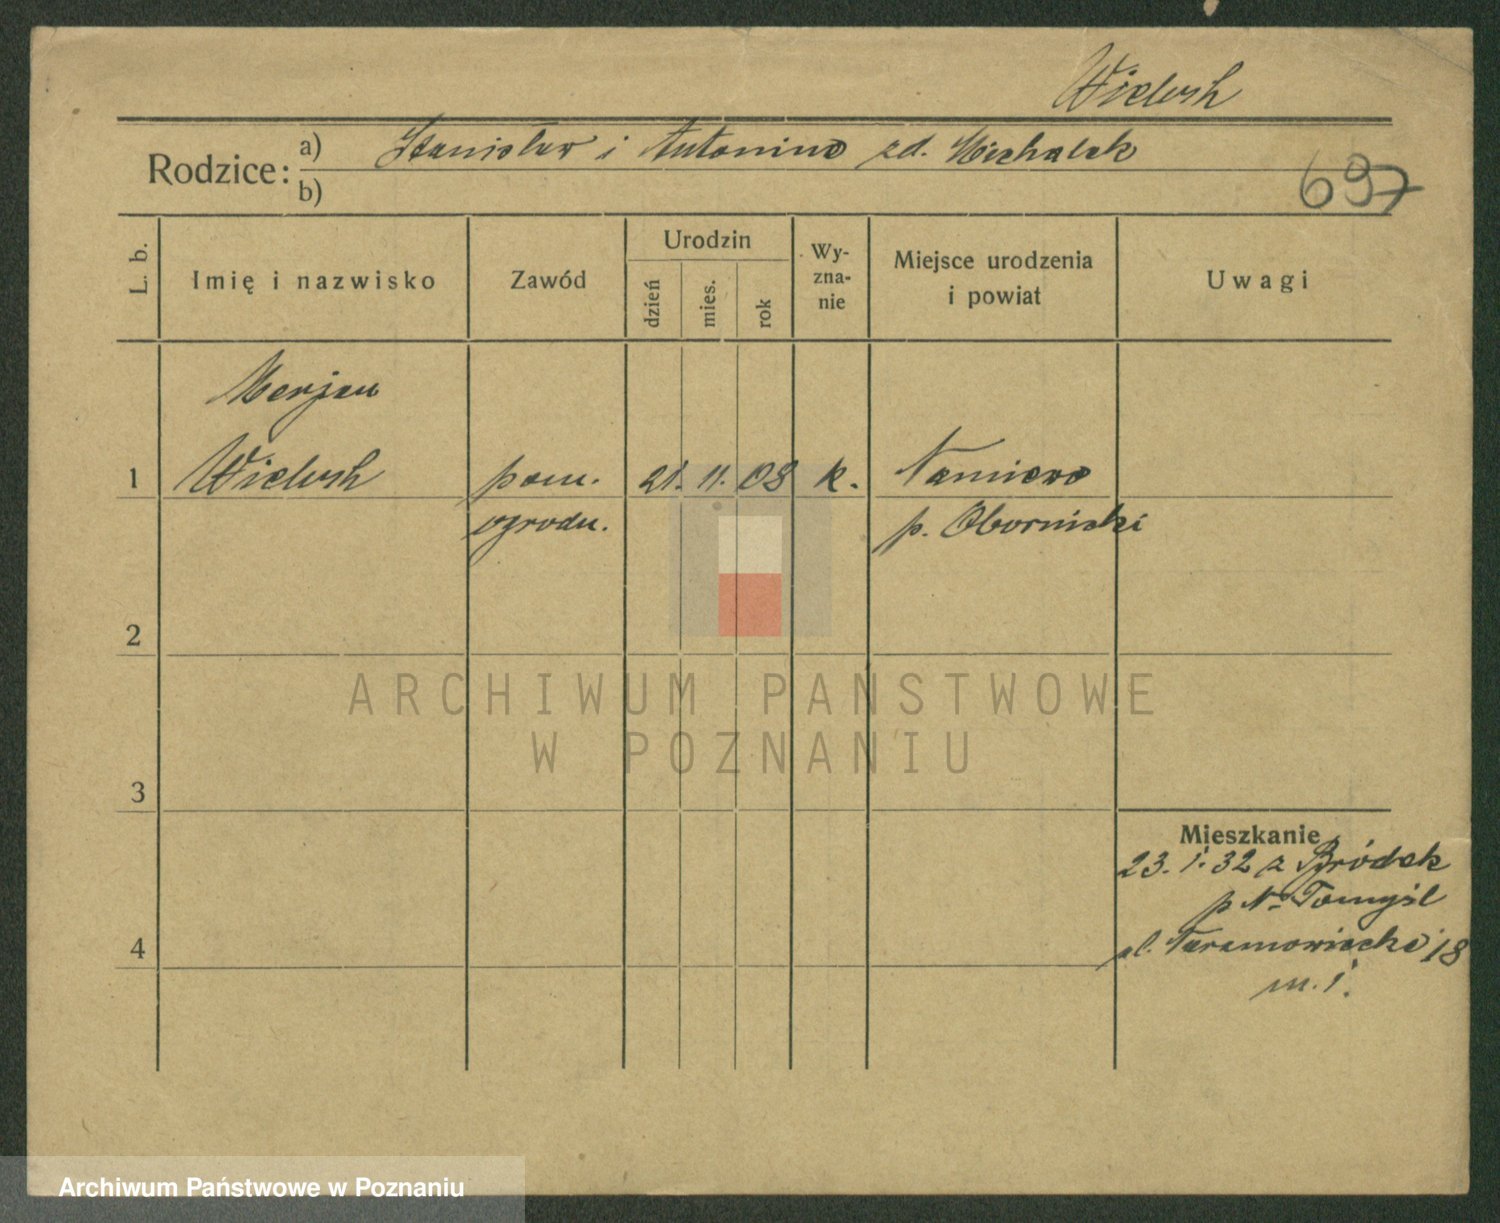 Wielosh
Rodzice: a) Stanisław i Antonina zd. Michalak
b)
697
L. b.
Imię i nazwisko
Zawód
Urodzin
dzień
mies.
rok
Wy-
zna-
nie
Miejsce urodzenia
i powiat
Uwagi
Marjan
1 Wielosh pom. 21. 11. 08 k.
ogrodn. p. Obornicki
2
ARCHIWUM PAŃSTWOWE
W POZNANIU
3
Mieszkanie
23. 1. 32 z Bródek
p N-Tomyśl
ul. Naramowicka 18
m. 1.
4
Archiwum Państwowe w Poznaniu